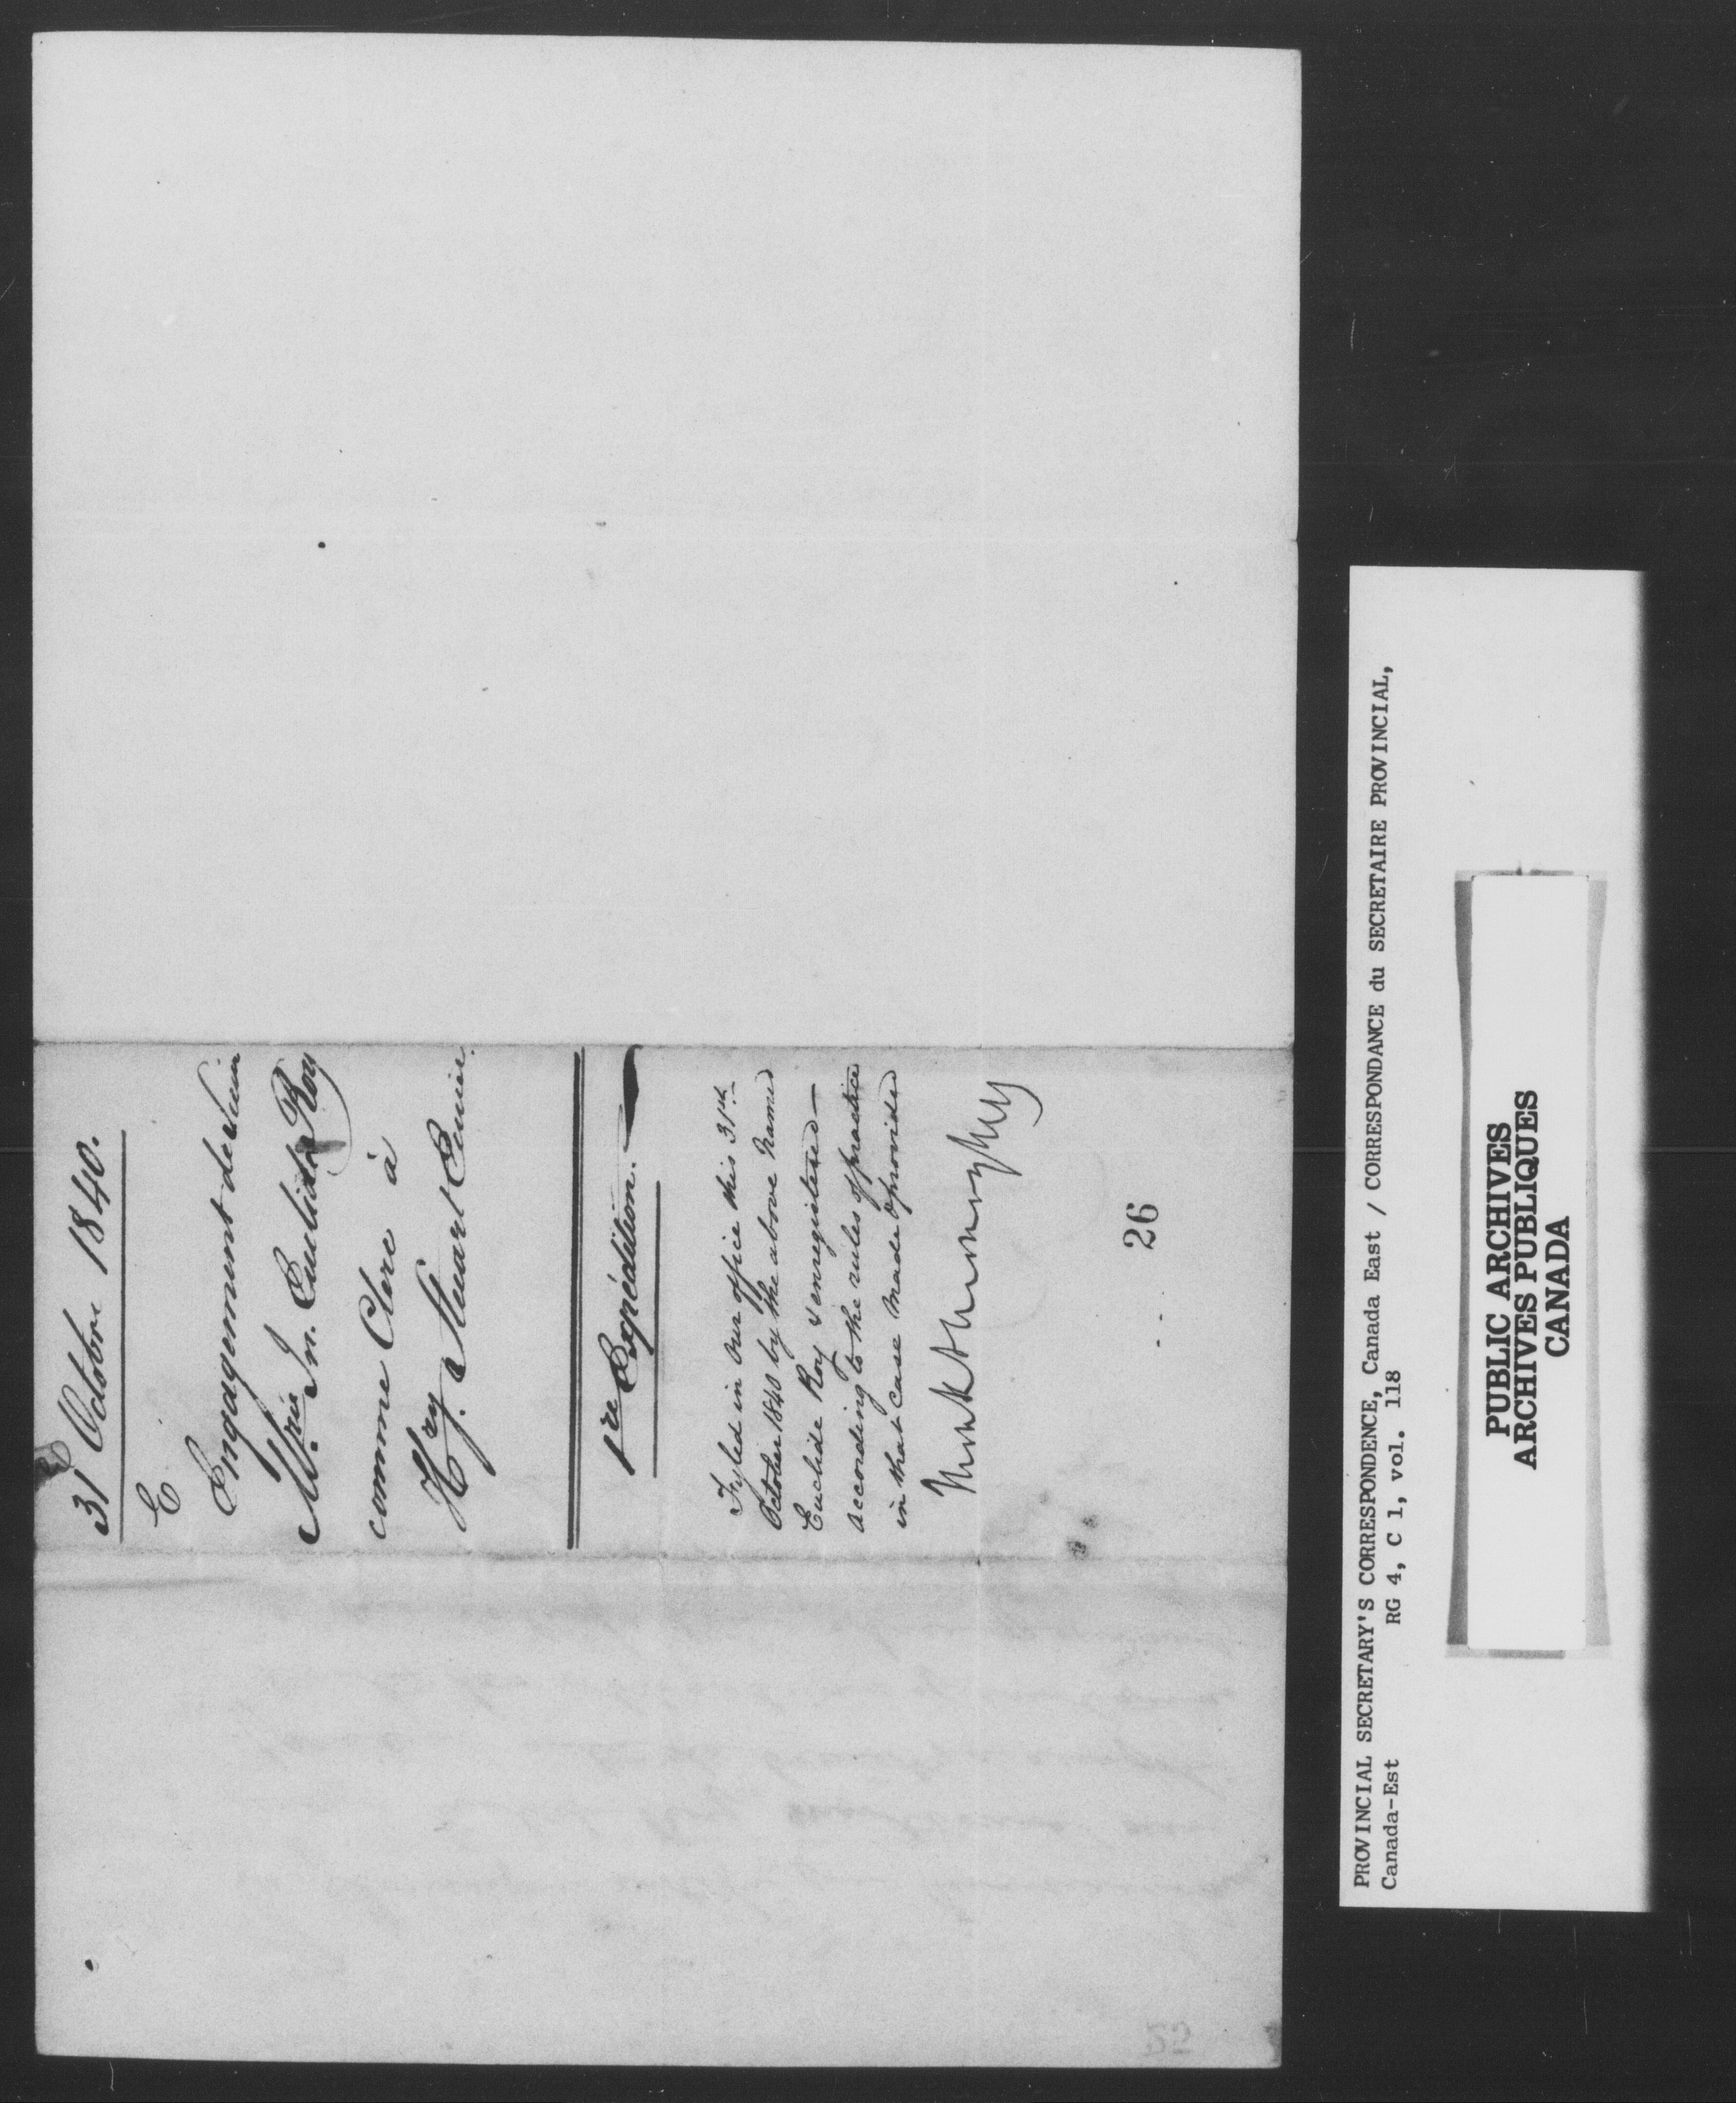 31 Octobre 1840.
E
Engagement de
Jn. Euclide Roy
comme Clerc à
Hry. Stuart Ecuier.
1re Expédition.
Fyled in our office this 31st
October 1840 by the above Named
Euclide Roy & enregistered—
according to the rules of practice
in that case made & provided
Monk &
26
PROVINCIAL SECRETARY'S CORRESPONDENCE, Canada East / CORRESPONDANCE du SECRETAIRE PROVINCIAL,
Canada-Est RG 4, C 1, vol. 118
PUBLIC ARCHIVES
ARCHIVES PUBLIQUES
CANADA